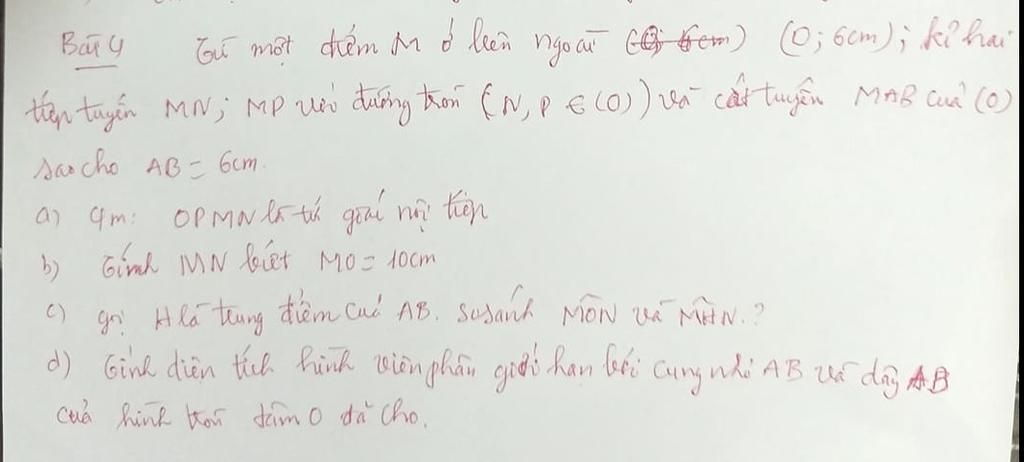 Bài 4 Từ một điểm M ở bên ngoài (O; 6cm) (O; 6cm); kẻ hai
tiếp tuyến MN; MP với đường tròn (N, P ∈ (O)) và cát tuyến MAB của (O)
sao cho AB = 6cm.
a) Cm: OPMN là tứ giác nội tiếp
b) Tính MN biết MO = 10cm
c) gọi H là trung điểm của AB. so sánh MÔN và MĤN.?
d) Tính diện tích hình viên phân giới hạn bởi cung nhỏ AB và dây AB
của hình tròn tâm O đã cho.